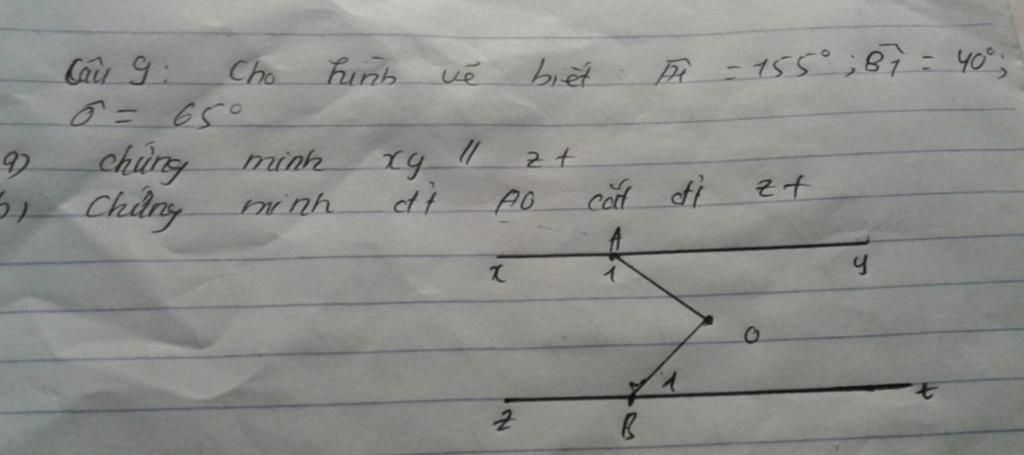 Câu 9: Cho hình vẽ biết Â1 = 155°; B̂1 = 40°;
Ô = 65°
a) chứng minh xy // zt
b) Chứng minh đt AO cắt đt zt
A
x 1 y
O
1
z B t